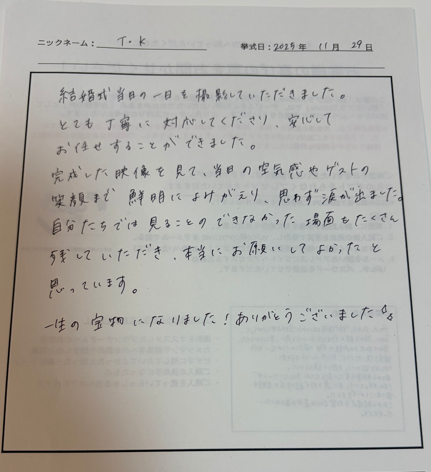 ニックネーム: T.K 挙式日: 2025年 11月 29日
結婚式当日の一日を撮影していただきました。
とても丁寧に対応してくださり、安心して
お任せすることができました。
完成した映像を見て、当日の空気感やゲストの
笑顔まで鮮明によみがえり、思わず涙が出ました。
自分たちでは見ることのできなかった場面もたくさん
残していただき、本当にお願いしてよかったと
思っています。
一生の宝物になりました!ありがとうございました